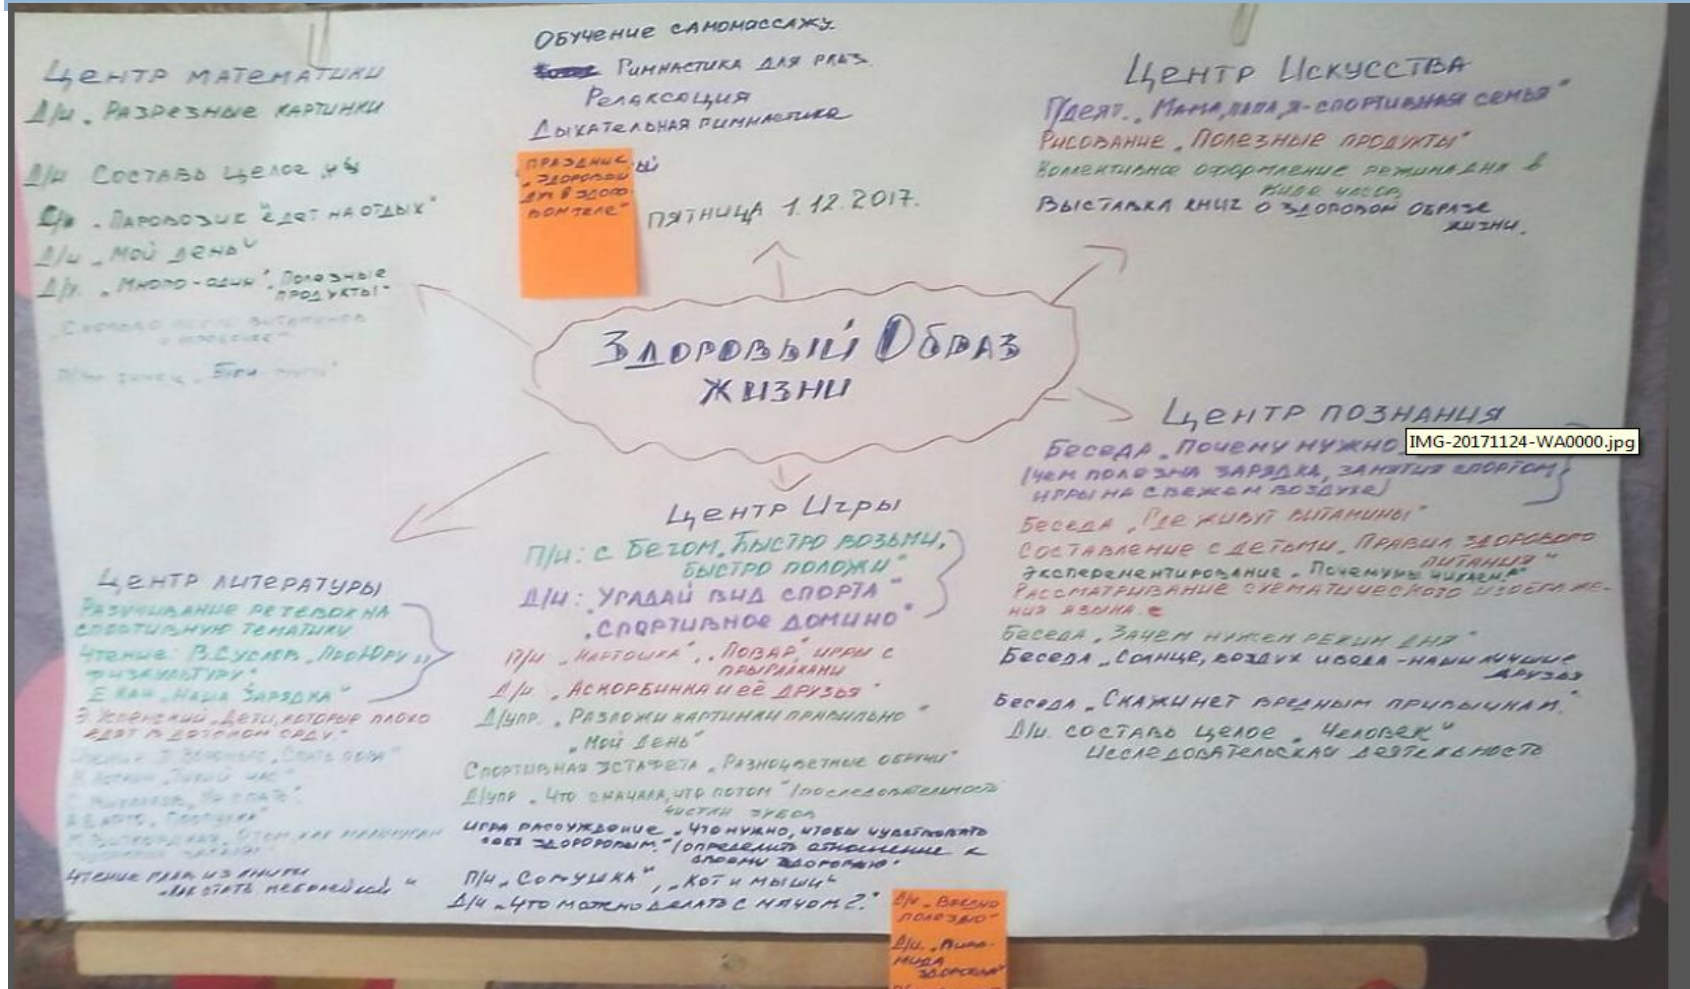 Обучение самомассажу.
Гимнастика для глаз.
Релаксация
Дыхательная гимнастика
Праздник
„Здоровый
дух в здоро-
вом теле"
ый
пятница 1.12.2017.
Здоровый Образ
жизни
Центр математики
Д/и „Разрезные картинки
Д/и Составь целое
„Паровозик едет на отдых"
Д/и „Мой день"
Д/и. „Много-один". Полезные
продукты"
Центр Искусства
П/деят. „Мама, папа, я-спортивная семья"
Рисование „Полезные продукты"
Коллективное оформление режима дня в
виде часов
Выставка книг о здоровом образе
жизни.
Центр познания
Беседа „Почему нужно
IMG-20171124-WA0000.jpg
(чем полезна зарядка, занятия спортом,
игры на свежем воздухе)
Беседа „Где живут витамины"
Составление с детьми „Правил здорового
питания"
Эксперементирование „Почему мы чихаем?"
Рассматривание схематического изображе-
ния языка.
Беседа „Зачем нужен режим дня"
Беседа „Солнце, воздух и вода-наши лучшие
друзья
Беседа „Скажи нет вредным привычкам."
Д/и. составь целое „Человек"
Исследовательская деятельность
Центр Игры
П/и: с бегом „Быстро возьми,
быстро положи"
Д/и: „Угадай вид спорта"
„Спортивное домино"
П/и „Картошка", „Повар", игры с
прыгалками
Д/и. „Аскорбинка и её друзья"
Д/упр. „Разложи картинки правильно"
„Мой день"
Спортивная эстафета „Разноцветные обручи"
Д/упр „Что сначала, что потом" (последовательность
чистки зубов
Игра рассуждение „Что нужно, чтобы чувствовать
себя здоровым." (определить отношение к
своему здоровью"
П/и „Совушка", „Кот и мыши"
Д/и „Что можно делать с мячом?"
Д/и „Вредно
полезно"
Д/и. „Пира-
мида
здоровья"
Центр литературы
Разучивание речевок на
спортивную тематику
Чтение: В.Суслов „Про Юру и
физкультуру"
Е.Кан „Наша зарядка"
Э.Успенский „Дети, которые плохо
едят в детском саду."
„Спать пора"
„Тихий час"
С. Михалков „Не спать".
А.Барто
Чтение глав из книги
„Как стать неболейкой"